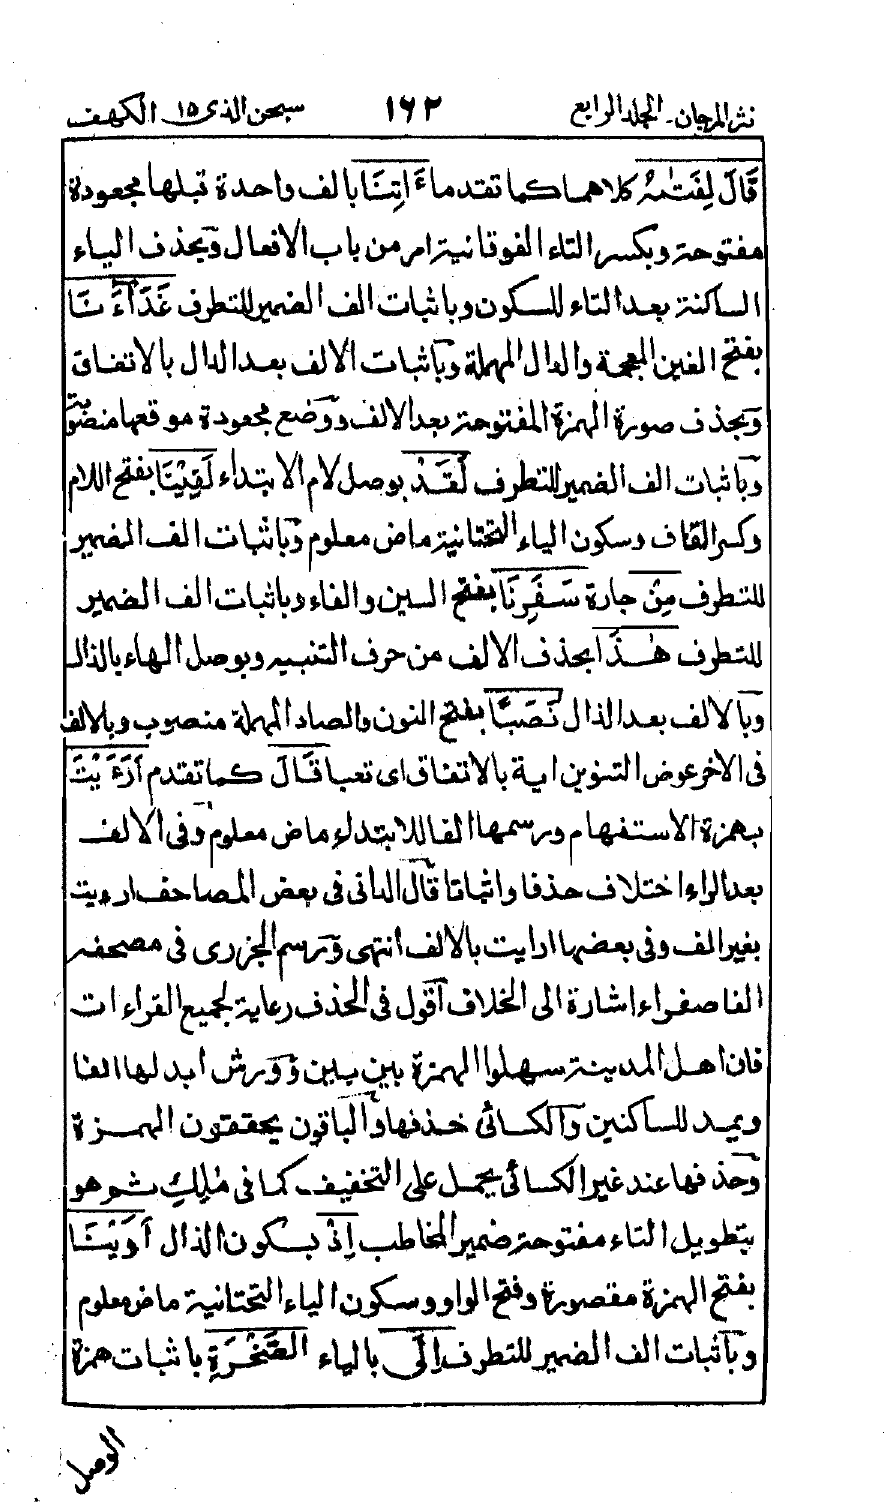 نثر المرجان۔ الجلد الرابع ١٦٢ سبحن الذى ١٥ الكهف
قَالَ لِفَتٰىهُ كلاهما كما تقدما ءَاتِنَا بالف واحدة قبلها مجعودة
مفتوحة وبكسر التاء الفوقانية امر من باب الافعال وبحذف الياء
الساكنة بعد التاء للسكون وباثبات الف الضمير للتطرف غَدَآءَنَا
بفتح الغين المعجمة والدال المهملة وباثبات الالف بعد الدال بالاتفاق
وبحذف صورة الهمزة المفتوحة بعد الالف ووضع مجعودة موقعها منصوب
وباثبات الف الضمير للتطرف لَقَدْ بوصل لام الابتداء لَقِيْنَا بفتح اللام
وكسر القاف وسكون الياء التحتانية ماض معلوم وباثبات الف الضمير
للتطرف مِنْ جارة سَفَرِنَا بفتح السين والفاء وباثبات الف الضمير
للتطرف هٰذَا بحذف الالف من حرف التنبيه وبوصل الهاء بالذال
وبالالف بعد الذال نَصَبًا بفتح النون والصاد المهملة منصوب وبالالف
فى الاخر عوض التنوين اية بالاتفاق اى تعبا قَالَ كما تقدم اَرَءَيْتَ
بهمزة الاستفهام ورسمها الفا للابتداء ماض معلوم وفى الالف
بعد الراء اختلاف حذفا واثباتا قال الدانى فى بعض المصاحف ارءيت
بغير الف وفى بعضها ارايت بالالف انتهى ورسم الجزرى فى مصحفه
الفا صفراء اشارة الى الخلاف اقول فى الحذف رعاية لجميع القراءات
فان اهل المدينة سهلوا الهمزة بين بين وورش ابدلها الفا
ويمد للساكنين والكسائى حذفها والباقون يحققون الهمزة
وحذفها عند غير الكسائى يحمل على التخفيف كما فى مٰلِكِ شو هو
بتطويل التاء مفتوحة ضمير المخاطب اِذْ بسكون الذال اَوَيْنَا
بفتح الهمزة مقصورة وفتح الواو وسكون الياء التحتانية ماض معلوم
وباثبات الف الضمير للتطرف اِلَى بالياء الصَّخْرَةِ باثبات همزة
الوصل